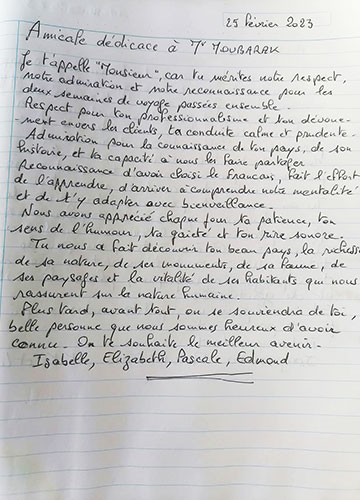 25 février 2023
Amicale dédicace à Mr MOUBARAK
Je t'appelle "Monsieur", car tu mérites notre respect,
notre admiration et notre reconnaissance pour les
deux semaines de voyage passées ensemble.
Respect pour ton professionnalisme et ton dévoue-
ment envers les clients, ta conduite calme et prudente.
Admiration pour la connaissance de ton pays, de son
histoire, et ta capacité à nous les faire partager
Reconnaissance d'avoir choisi le Français, fait l'effort
de l'apprendre, d'arriver à comprendre notre mentalité
et de t'y adapter avec bienveillance.
Nous avons apprécié chaque jour ta patience, ton
sens de l'humour, ta gaieté et ton rire sonore.
Tu nous a fait découvrir ton beau pays, la richesse
de sa nature, de ses monuments, de sa faune, de
ses paysages et la vitalité de ses habitants qui nous
rassurent sur la nature humaine.
Plus tard, avant tout, on se souviendra de toi,
belle personne que nous sommes heureux d'avoir
connue. On te souhaite le meilleur avenir.
Isabelle, Elizabeth, Pascale, Edmond